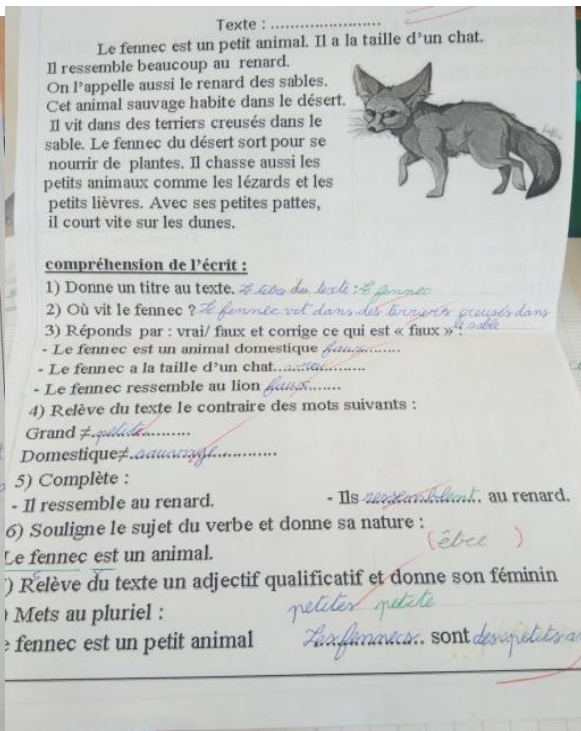 Texte : ........................
Le fennec est un petit animal. Il a la taille d'un chat.
Il ressemble beaucoup au renard.
On l'appelle aussi le renard des sables.
Cet animal sauvage habite dans le désert.
Il vit dans des terriers creusés dans le
sable. Le fennec du désert sort pour se
nourrir de plantes. Il chasse aussi les
petits animaux comme les lézards et les
petits lièvres. Avec ses petites pattes,
il court vite sur les dunes.
compréhension de l'écrit :
1) Donne un titre au texte. Le titre du texte : Le fennec
2) Où vit le fennec ? Le fennec vit dans des terriers creusés dans
le sable
3) Réponds par : vrai/ faux et corrige ce qui est « faux » :
- Le fennec est un animal domestique faux.......
- Le fennec a la taille d'un chat...vrai.........
- Le fennec ressemble au lion faux.......
4) Relève du texte le contraire des mots suivants :
Grand ≠.petite.........
Domestique≠.sauvage............
5) Complète :
- Il ressemble au renard. - Ils ressemblent. au renard.
6) Souligne le sujet du verbe et donne sa nature :
(être )
Le fennec est un animal.
) Relève du texte un adjectif qualificatif et donne son féminin
petites petite
Mets au pluriel :
e fennec est un petit animal Les fennecs.. sont des petits an